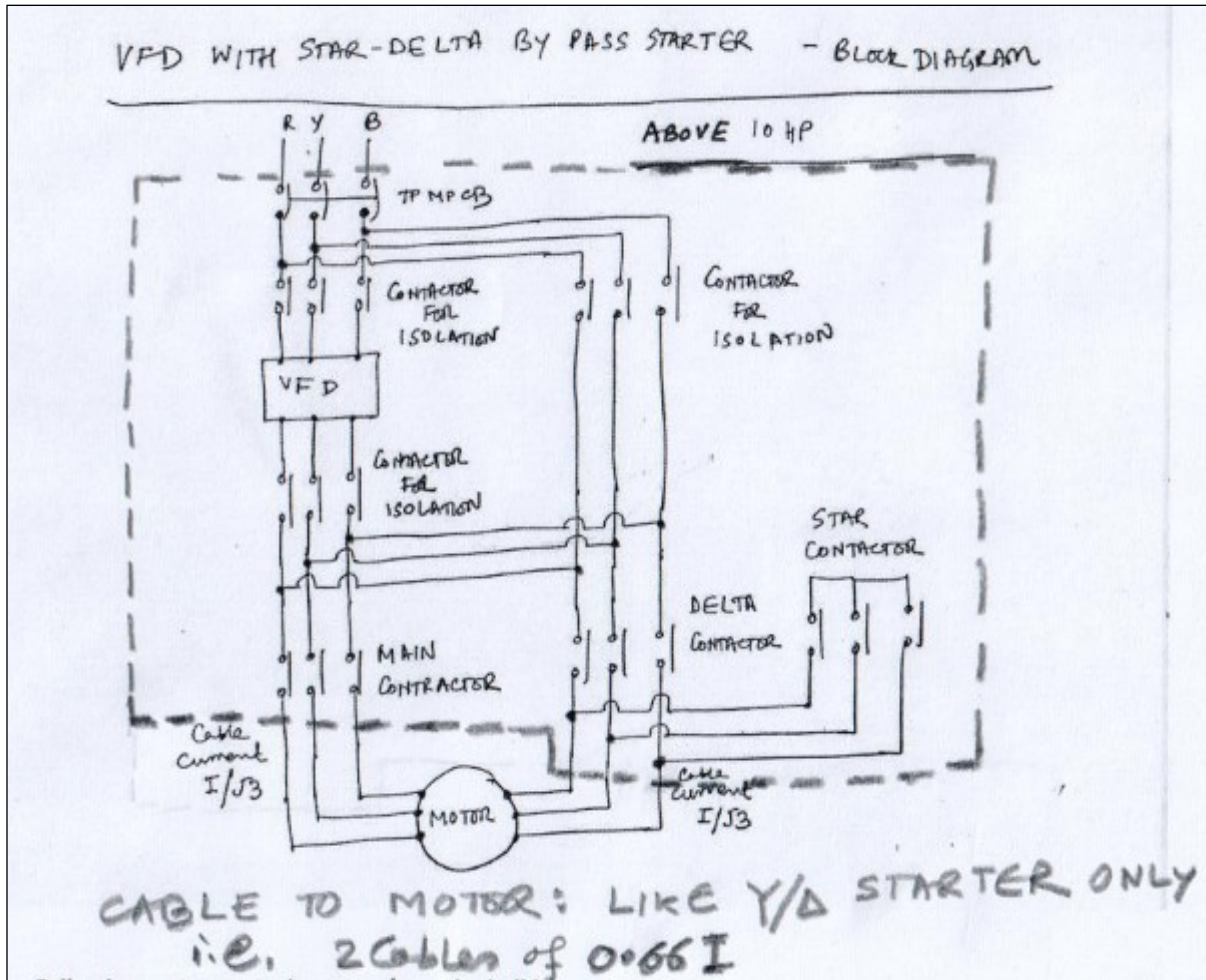 VFD WITH STAR-DELTA BY PASS STARTER - BLOCK DIAGRAM
ABOVE 10 HP
R Y B
TP MPCB
CONTACTOR
FOR
ISOLATION
CONTACTOR
FOR
ISOLATION
VFD
CONTACTOR
FOR
ISOLATION
STAR
CONTACTOR
DELTA
CONTACTOR
MAIN
CONTRACTOR
Cable
current
I/√3
Cable
current
I/√3
MOTOR
CABLE TO MOTOR: LIKE Y/Δ STARTER ONLY
i.e. 2 Cables of 0.66 I